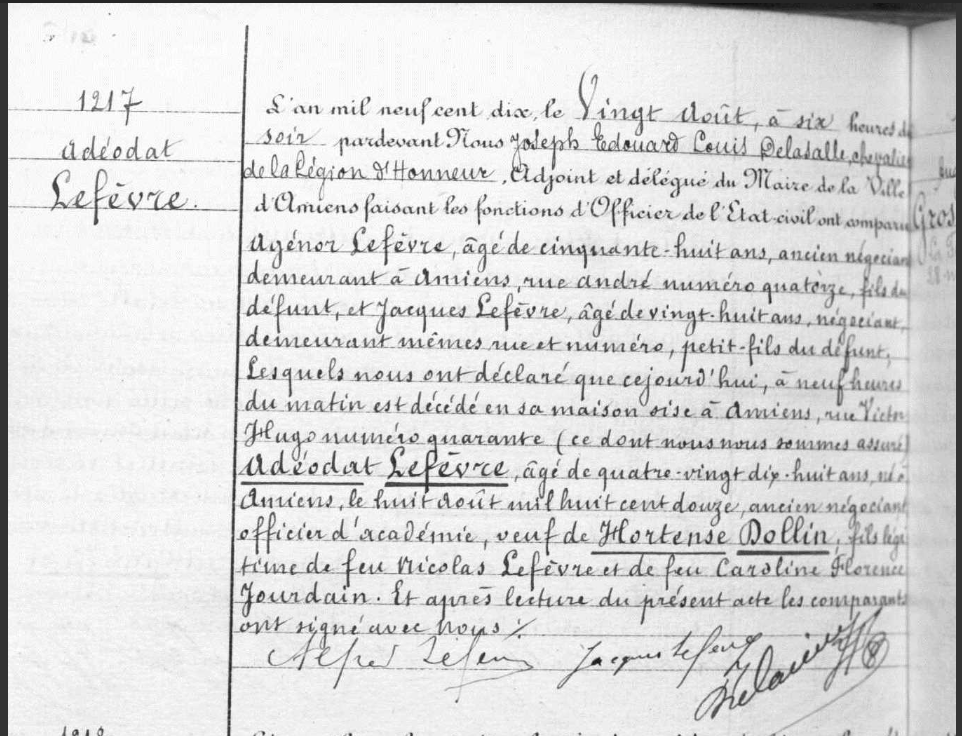 1217
Adéodat
Lefèvre.
L'an mil neuf cent dix, le Vingt Août, à six heures du
soir pardevant Nous Joseph Edouard Louis Delasalle, chevalier
de la Légion d'Honneur, Adjoint et délégué du Maire de la Ville
d'Amiens faisant les fonctions d'Officier de l'Etat-civil ont comparu
Agénor Lefèvre, âgé de cinquante-huit ans, ancien négociant
demeurant à Amiens, rue andré numéro quatorze, fils du
défunt, et Jacques Lefèvre, âgé de vingt-huit ans, négociant,
demeurant mêmes rue et numéro, petit-fils du défunt,
Lesquels nous ont déclaré que cejourd'hui, à neuf heures
du matin est décédé en sa maison sise à Amiens, rue Victor
Hugo numéro quarante (ce dont nous nous sommes assuré)
Adéodat Lefèvre, âgé de quatre-vingt dix-huit ans, né à
Amiens, le huit Août mil huit cent douze, ancien négociant
officier d'académie, veuf de Hortense Dollin, fils légi
time de feu Nicolas Lefèvre et de feu Caroline Florence
Jourdain. Et après lecture du présent acte les comparants
ont signé avec nous ./.
Jacques Lefèvre
Gros
1218